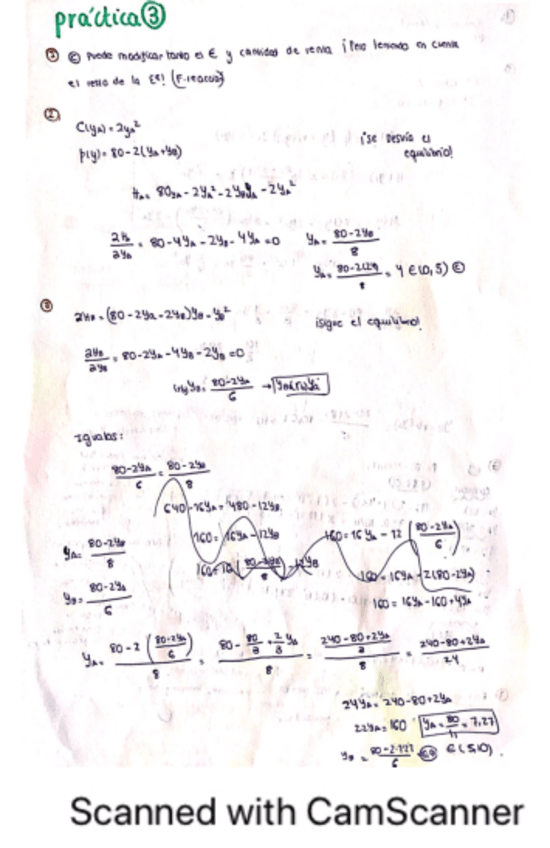 práctica ③
① ⓒ Puede modificar tanto el € y cantidad de venta ¡Pero teniendo en cuenta
el resto de la
②
C(yA) = 2yA²
p(y) = 80 - 2(yA + yB)
¡se desvía el
equilibrio!
80yA - 2yA² - 2yByA - 2yA²
= 80 - 4yA - 2yB - 4yA = 0
yA = (80 - 2yB)/8
= 4 ∈ (0, 5) ⓒ
③
(80 - 2yA - 2yB)yB - yB²
¡sigue el equilibrio!
= 80 - 2yA - 4yB - 2yB = 0
yB = (80 - 2yA)/6
Igualas:
(80 - 2yA)/6 = (80 - 2yB)/8
640 - 16yA = 480 - 12yB
160 = 16yA - 12yB
160 = 16yA - 12 ((80 - 2yA)/6)
160 = 16 ((80 - 2yB)/8) - 12yB
160 = 16yA - 2(80 - 2yA)
160 = 16yA - 160 + 4yA
yA = (80 - 2yB)/8
yB = (80 - 2yA)/6
yA = (80 - 2((80 - 2yA)/6))/8 = (80 - 80/3 + 2/3 yA)/8 = ((240 - 80 + 2yA)/3)/8 = (240 - 80 + 2yA)/24
24yA = 240 - 80 + 2yA
22yA = 160
yA = 80/11 = 7,27
yB = (80 - 2·7,27)/6
∈ (5, 10)
Scanned with CamScanner